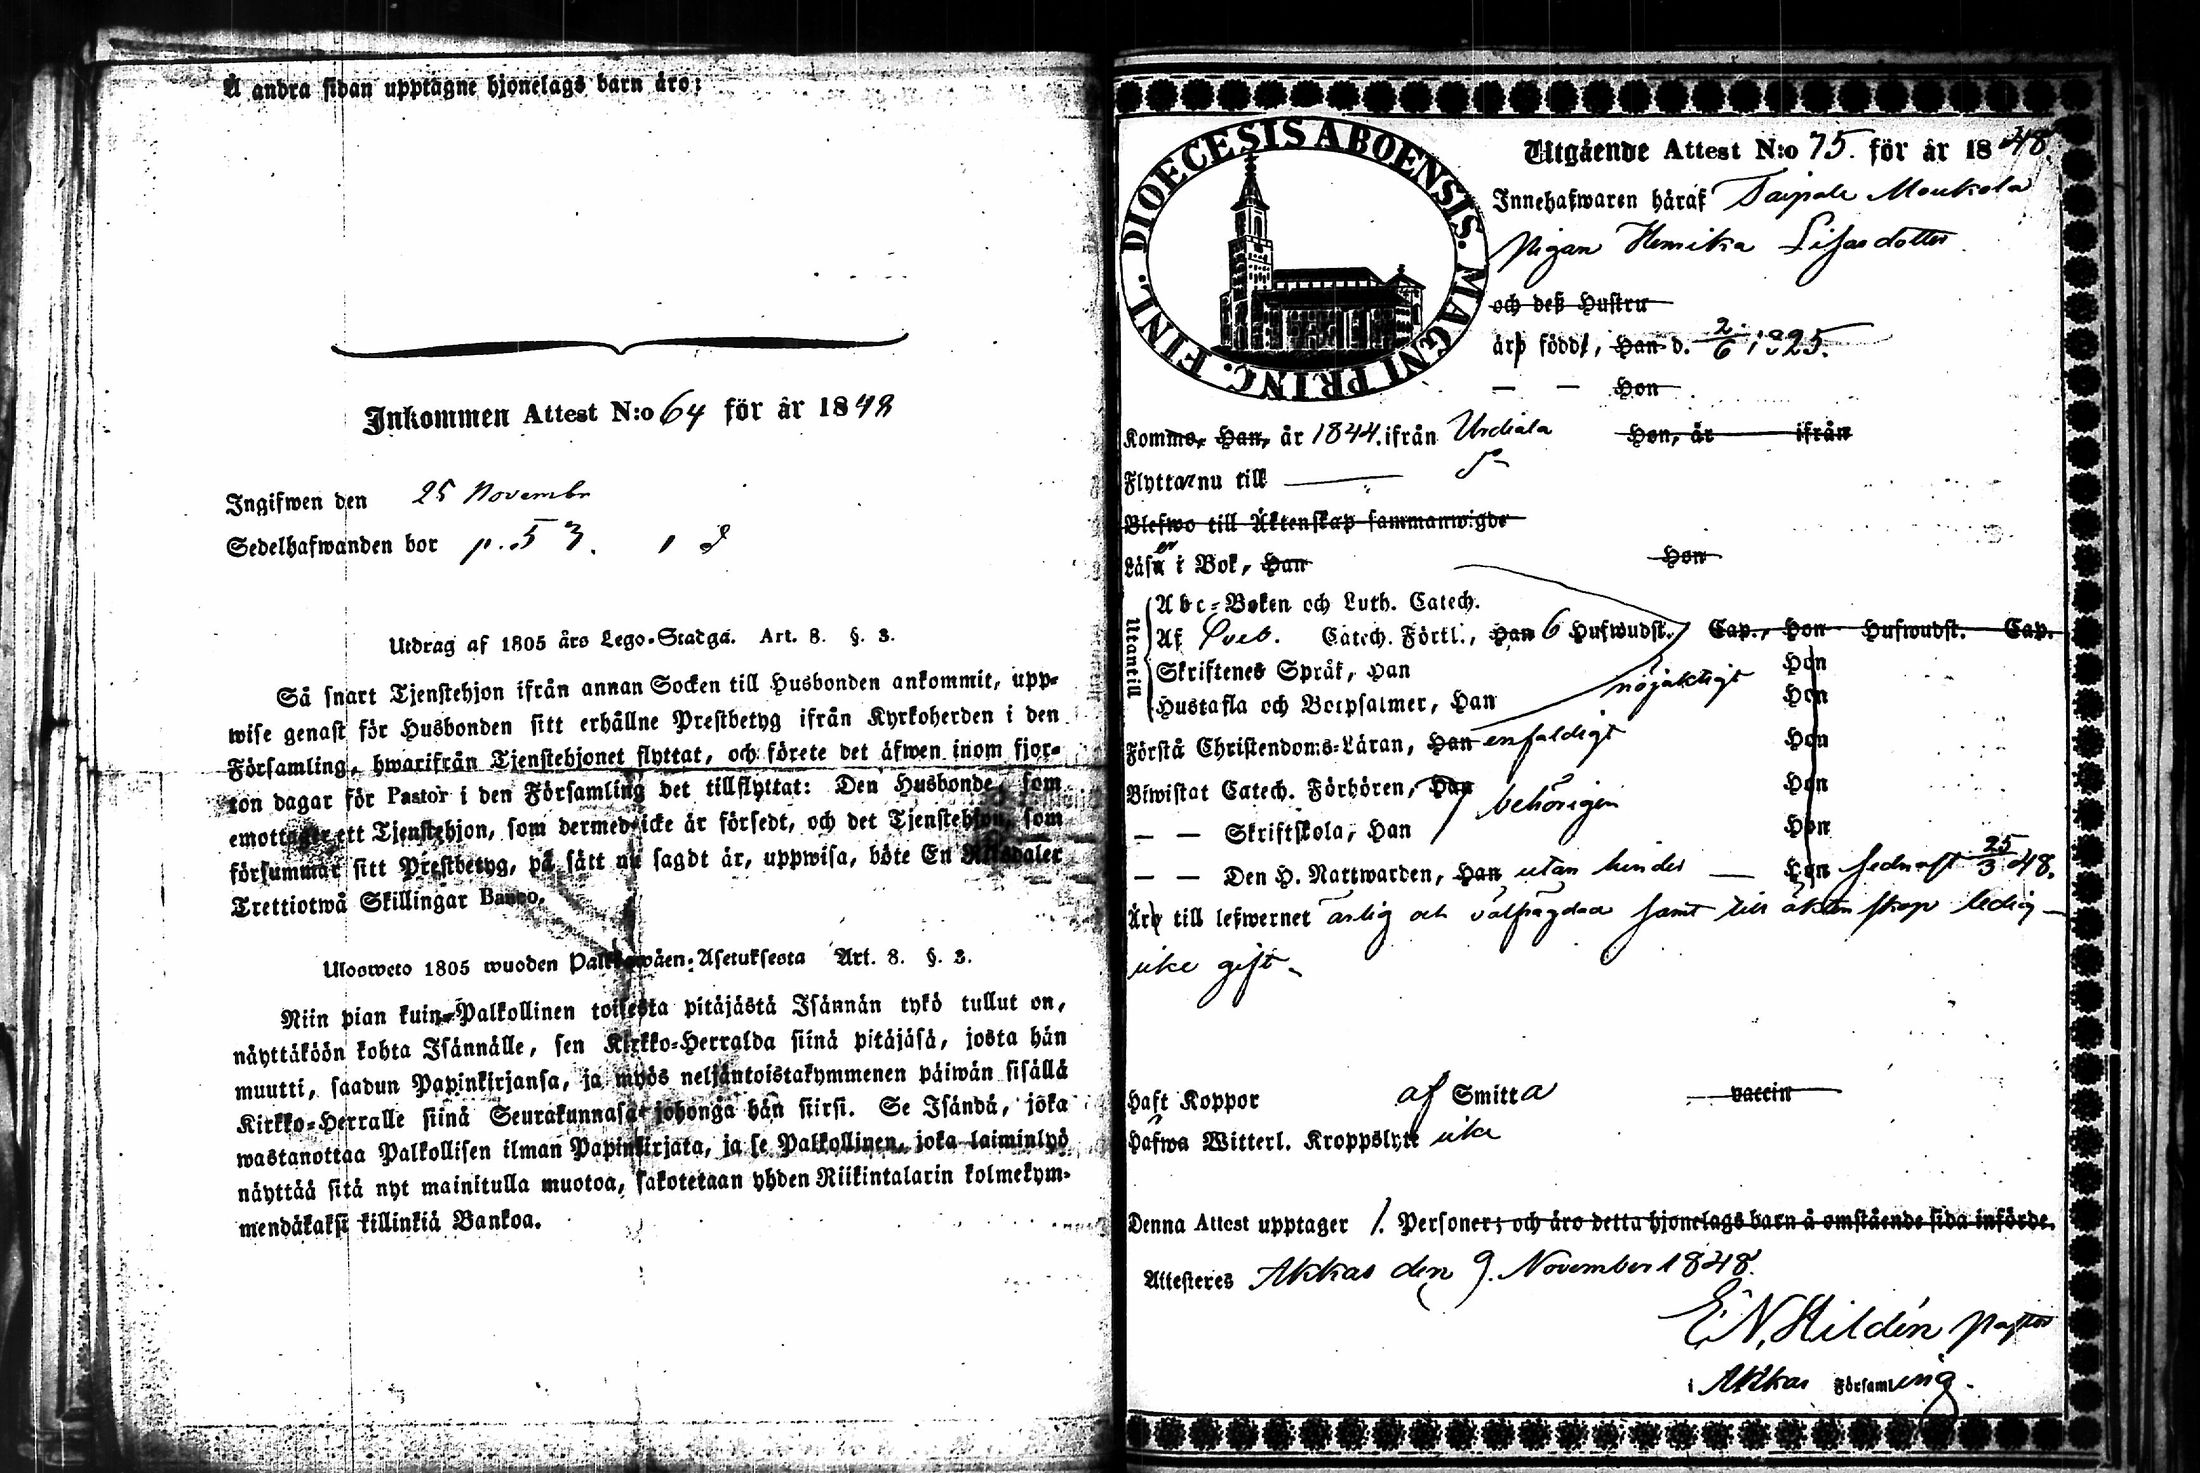 Å andra sidan upptagne hjonelags barn äro:
Inkommen Attest N:o 64 för år 1848
Ingifwen den 25 Novembr
Sedelhafwanden bor p. 53.
Utdrag af 1805 års Lego-Stadga. Art. 8. §. 3.
Så snart Tjenstehjon ifrån annan Socken till Husbonden ankommit, upp-
wise genast för Husbonden sitt erhållne Prestbetyg ifrån Kyrkoherden i den
Församling, hwarifrån Tjenstehjonet flyttat, och förete det äfwen inom fjor-
ton dagar för Pastor i den Församling det tillflyttat: Den Husbonde, som
emottager ett Tjenstehjon, som dermed icke är försedt, och det Tjenstehjon, som
försummar sitt Prestbetyg, på sätt nu sagdt är, uppwisa, böte En Riksdaler
Trettiotwå Skillingar Banco.
Ulosweto 1805 wuoden Palkkawäen-Asetuksesta Art. 8. §. 3.
Niin pian kuin Palkollinen toisesta pitäjästä Isännän tykö tullut on,
näyttäköön kohta Isännälle, sen Kirkko-Herralda siinä pitäjäsä, josta hän
muutti, saadun Papinkirjansa, ja myös neljäntoistakymmenen päiwän sisällä
Kirkko-Herralle siinä Seurakunnasa johonga hän siirsi. Se Isändä, joka
wastanottaa Palkollisen ilman Papinkirjata, ja se Palkollinen, joka laiminlyö
näyttää sitä nyt mainitulla muotoa, sakotetaan yhden Riikintalarin kolmekym-
mendäkaksi killinkiä Bankoa.
DIOECESIS ABOENSIS. MAGNI PRINC. FINL.
Utgående Attest N:o 75. för år 1848.
Innehafwaren häraf Taipale Moukola
Pigan Henrika Lisasdotter
och deß Hustru
äro född, Han d. 2/6 1825.
— — Hon
Komme, Han, år 1844. ifrån Urdiala Hon, år ifrån
Flyttar nu till
Blefwo till Äktenskap sammanwigde
Läser i Bok, Han Hon
Utantill
Abc-Boken och Luth. Catech.
Af Sveb. Catech. Förkl., Han 6 Hufwudst. Cap., Hon Hufwudst. Cap.
Skriftenes Språk, Han Hon
Hustafla och Botpsalmer, Han nöjaktigt Hon
Förstå Christendoms-Läran, Han enfaldigt Hon
Biwistat Catech. Förhören, Han behörigen Hon
— — Skriftskola, Han Hon
— — Den H. Nattwarden, Han utan hinder — Hon sednast 25/3 48.
Äro till lefwernet ärlig och välfrägdad samt till äktenskap ledig —
icke gift.
Haft Koppor af Smitta vaccin
Hafwa Witterl. Kroppslyte icke
Denna Attest upptager 1. Personer; och äro detta hjonelags barn å omstående sida införde.
Attesteres Akkas den 9. November 1848.
E N. Hildén Pastor
i Akkas Församling.